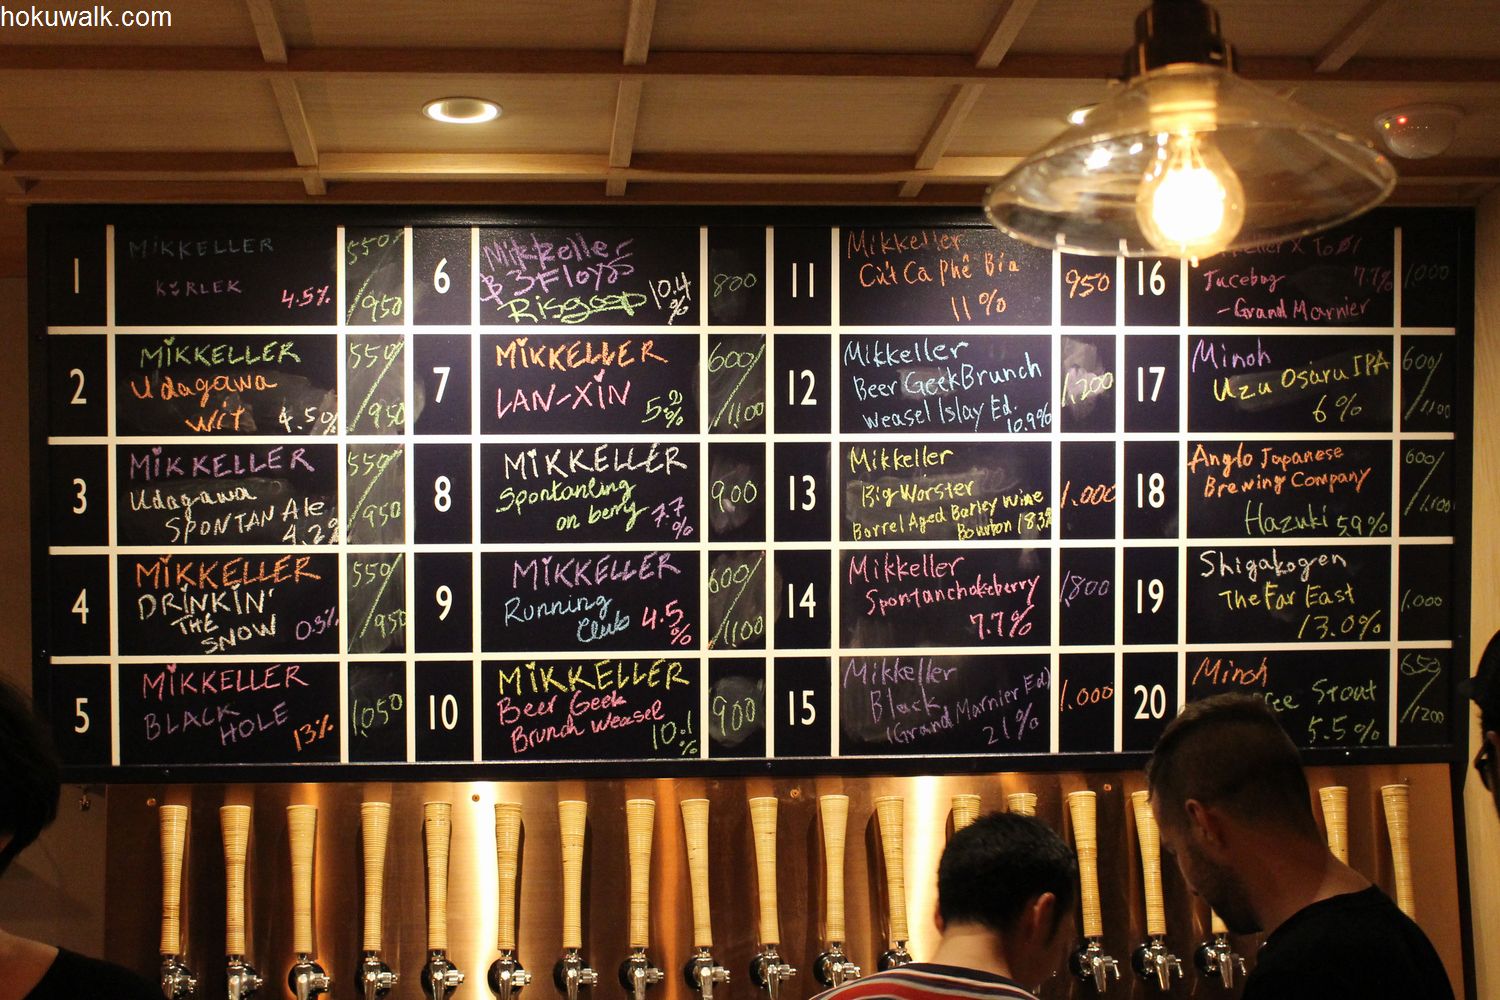 hokuwalk.com
1
MIKKELLER
KIRLEK 4.5%
550/
950
2
MIKKELLER
Udagawa
WIT 4.5%
550/
950
3
MIKKELLER
Udagawa
SPONTAN Ale
4.2%
550/
950
4
MIKKELLER
DRINKIN'
THE
SNOW 0.3%
550/
950
5
MIKKELLER
BLACK
HOLE 13%
1,050
6
Mikkeller
& 3Floyds
Risgoop 10.4%
800
7
MIKKELLER
LAN-XIN
5%
600/
1100
8
MIKKELLER
Spontanling
on berry 7.7%
900
9
MIKKELLER
Running
Club 4.5%
600/
1100
10
MIKKELLER
Beer Geek
Brunch Weasel
10.1%
900
11
Mikkeller
Cứt Cà Phê Bia
11%
950
12
Mikkeller
Beer Geek Brunch
Weasel Islay Ed.
10.9%
1,200
13
Mikkeller
Big Worster
Barrel Aged Barley Wine
Bourbon 18.3%
1.000
14
Mikkeller
Spontanchokeberry
7.7%
1,800
15
Mikkeller
Black
(Grand Marnier Ed)
21%
1.000
16
X TOØL
Jucebag 7.7%
-Grand Marnier
1,000
17
Minoh
Uzu Osaru IPA
6%
600/
1100
18
Anglo Japanese
Brewing Company
Hazuki 5.9%
600/
1,100
19
Shigakogen
The Far East
13.0%
1.000
20
Minoh
Stout
5.5%
650/
1200